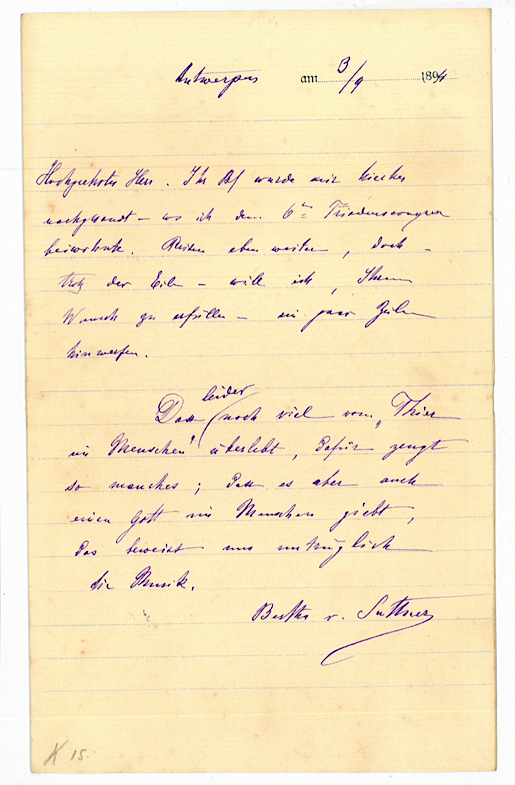 Antwerpen am 3/9 1894
Hochgeehrter Herr. Ihr Brf wurde mir hierher
nachgesandt – wo ich dem 6ten Friedenscongress
beiwohnte. Reisen eben weiter, doch –
trotz der Eile – will ich, Ihren
Wunsch zu erfüllen – ein paar Zeilen
hinwerfen.
leider
Dass noch viel vom „Thier
im Menschen" überlebt, dafür zeugt
so manches; dass es aber auch
einen Gott im Menschen giebt,
das beweist uns untrüglich
die Musik.
Bertha v. Suttner
K 15.